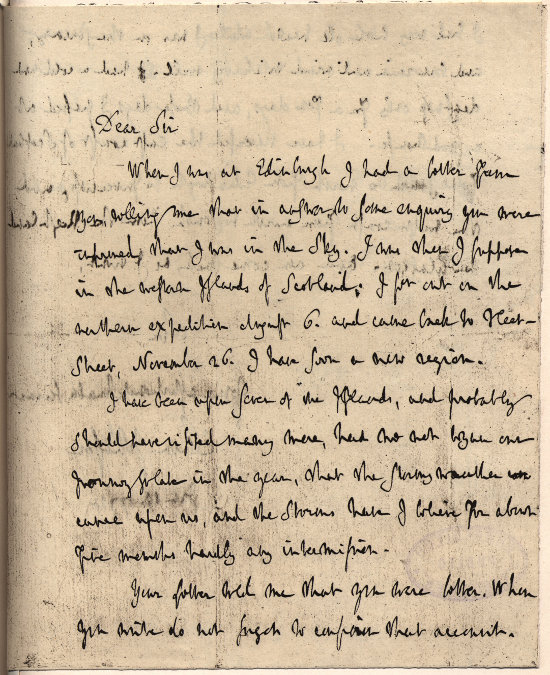 Dear Sir
When I was at Edinburgh I had a letter from
you telling me that in answer to some enquiry you were
informed that I was in the Sky. I was then I suppose
in the western Islands of Scotland; I set out on the
northern expedition August 6. and came back to Fleet-
street, November 26. I have seen a new region.
I have been upon seven of the Islands, and probably
should have visited many more, had we not begun our
journey so late in the year, that the stormy weather
came upon us, and the storms have I believe for about
five months hardly any intermission.
Your letter told me that you were better. When
you write do not forget to confirm that account.